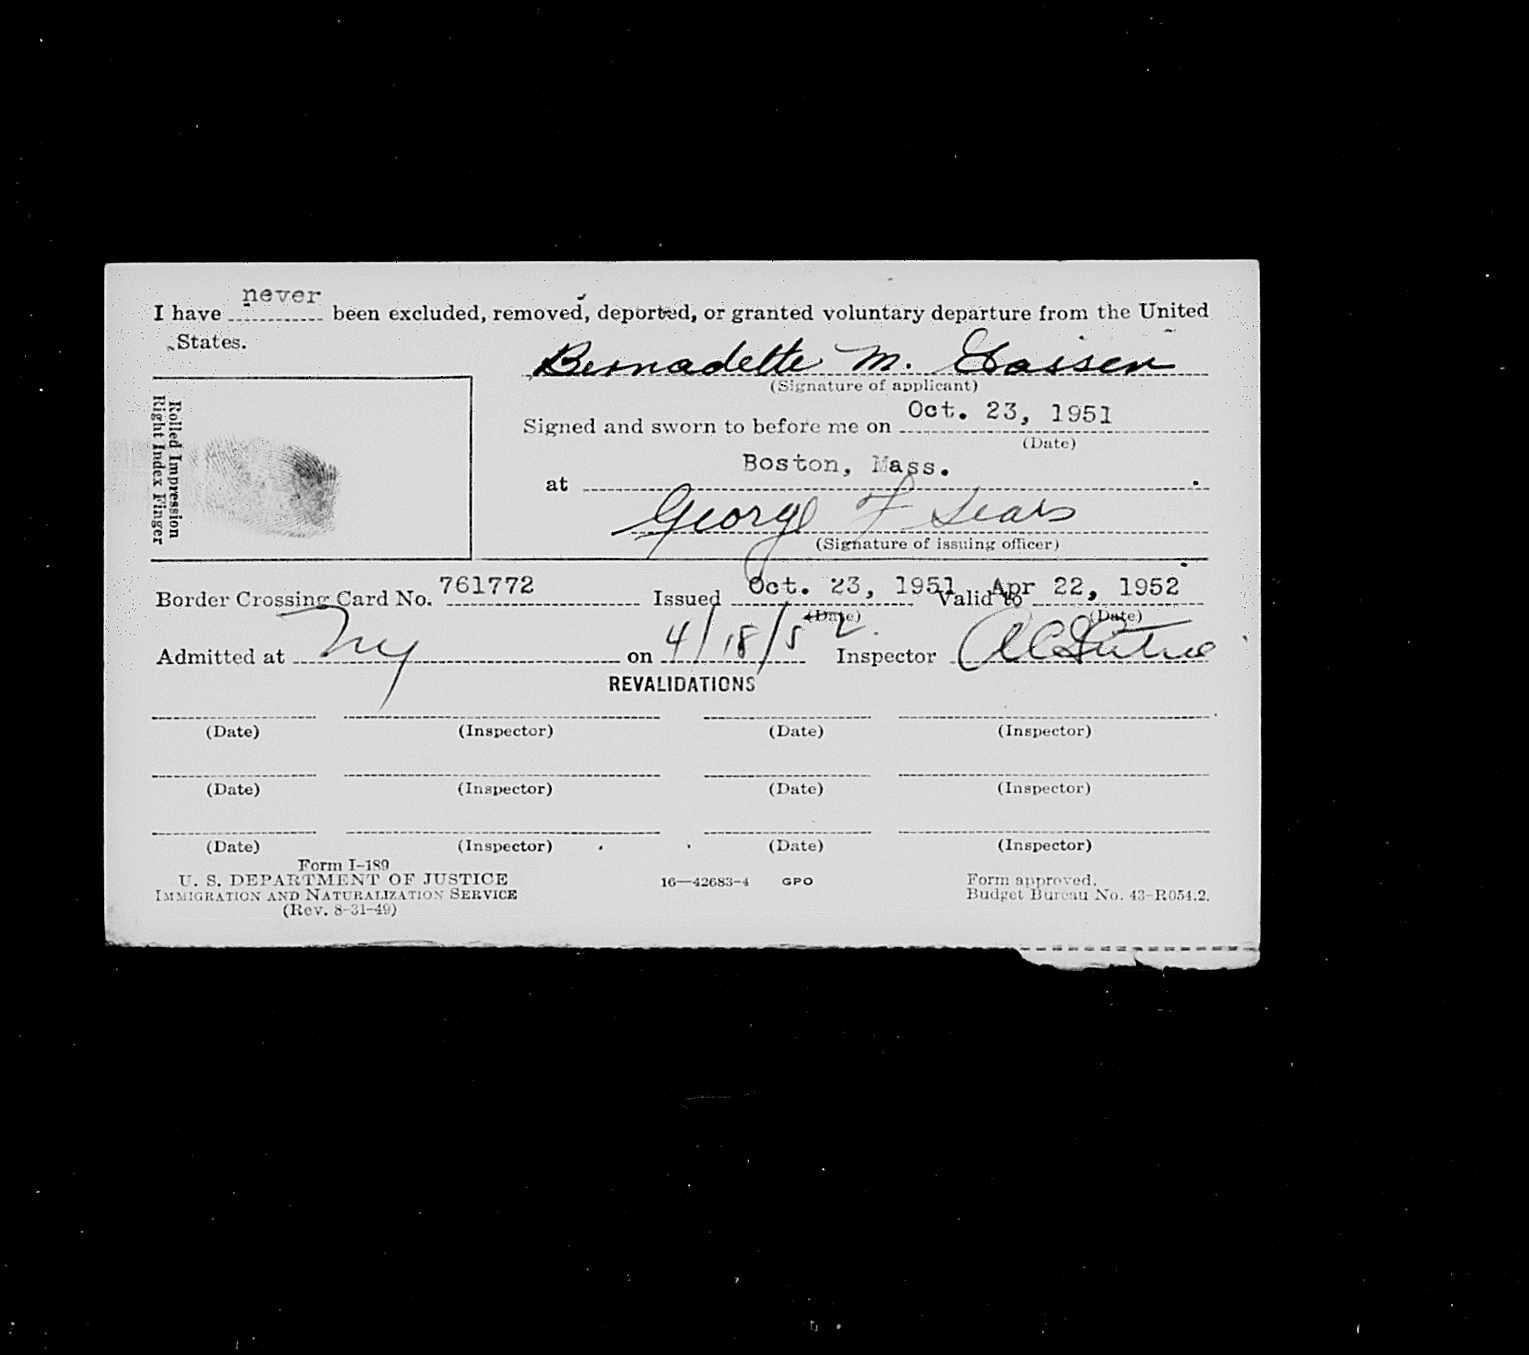 never
I have ........... been excluded, removed, deported, or granted voluntary departure from the United
States.
Bernadette M.
(Signature of applicant)
Rolled Impression
Right Index Finger
Oct. 23, 1951
Signed and sworn to before me on
(Date)
Boston, Mass.
at
George F Sears
(Signature of issuing officer)
Border Crossing Card No. 761772 Issued Oct. 23, 1951 Valid to Apr 22, 1952
(Date) (Date)
Admitted at NY on 4/18/52. Inspector
REVALIDATIONS
(Date) (Inspector) (Date) (Inspector)
(Date) (Inspector) (Date) (Inspector)
(Date) (Inspector) (Date) (Inspector)
Form I-189
U. S. DEPARTMENT OF JUSTICE 16—42683-4 GPO Form approved.
IMMIGRATION AND NATURALIZATION SERVICE Budget Bureau No. 43-R054.2.
(Rev. 8-31-49)